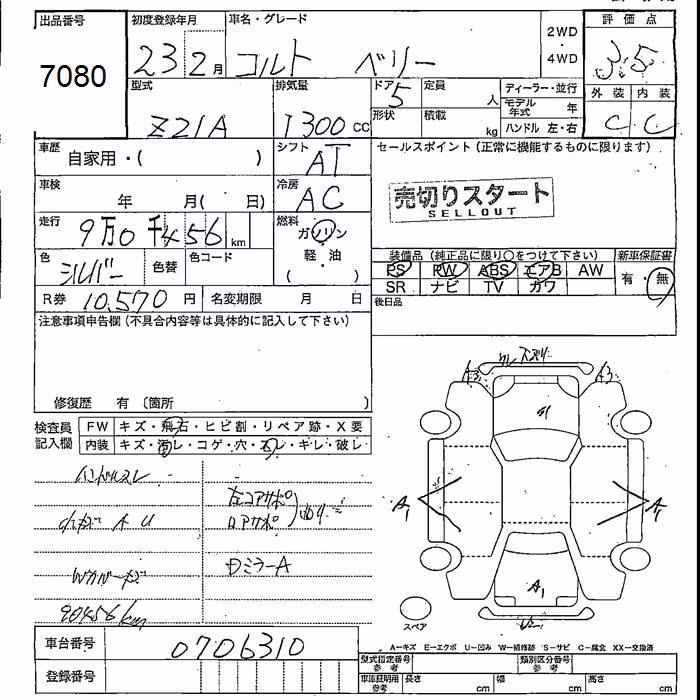 出品番号 初度登録年月 車名・グレード 2WD ・ 4WD 評価点
7080 23 2月 コルト ベリー 3.5
型式 排気量 ドア 定員 ディーラー・並行 外装 内装
Z21A 1300cc 5 人 モデル年式 年 C C
形状 積載 kg ハンドル 左・右
車歴 自家用・( ) シフト AT セールスポイント(正常に機能するものに限ります)
車検 年 月( 日) 冷房 AC 売切りスタート
SELLOUT
走行 9万0千456km 燃料 ガソリン
軽・油
( )
色 シルバー 色替 色コード
装備品(純正品に限り○をつけて下さい) 新車保証書
PS PW ABS エアB AW 有・無
SR ナビ TV カワ
R券 10,570円 名変期限 月 日 後日品
注意事項申告欄(不具合内容等は具体的に記入して下さい)
修復歴 有 〔箇所 〕
検査員記入欄 FW キズ・飛石・ヒビ割・リペア跡・X要
内装 キズ・汚レ・コゲ・穴・スレ・キレ・破レ
ハンドルスレ
左コアサポ
ロアサポ
Dミラー A
90456km
A3 A3
G1
A1 A1
A1
U2
スペア
A−キズ E−エクボ U−凹み W−補修跡 S−サビ C−腐食 XX−交換済
車台番号 0706310
登録番号
型式指定番号 参考 類別区分番号 参考
車庫証明用 参考 長さ cm 幅 cm 高さ cm